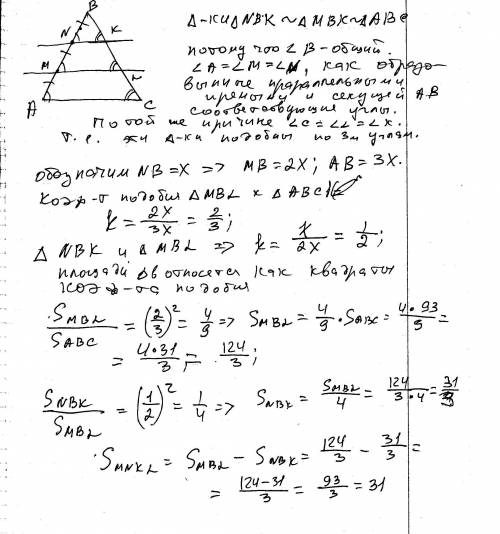 B
N K
M L
A C
Δ-ки Δ NBK ~ Δ MBK ~ Δ ABC
потому что ∠ B - общий.
∠A = ∠M = ∠N, как образо-
ванные параллельными
прямыми и секущей AB
соответствующие углы.
По той же причине ∠C = ∠L = ∠K.
т.е. эти Δ-ки подобны по 3м углам.
обозначим NB = X => MB = 2X; AB = 3X.
Коэф-т подобия Δ MBL и Δ ABC
k = 2X/3X = 2/3;
Δ NBK и Δ MBL => k = X/2X = 1/2;
площади Δв относятся как квадраты
коэф-та подобия
S_MBL/S_ABC = (2/3)² = 4/9 => S_MBL = 4/9 · S_ABC = 4·93/9 =
= 4·31/3 = 124/3;
S_NBK/S_MBL = (1/2)² = 1/4 => S_NBK = S_MBL/4 = 124/3·4 = 31/3
S_MNKL = S_MBL - S_NBK = 124/3 - 31/3 =
= 124-31/3 = 93/3 = 31